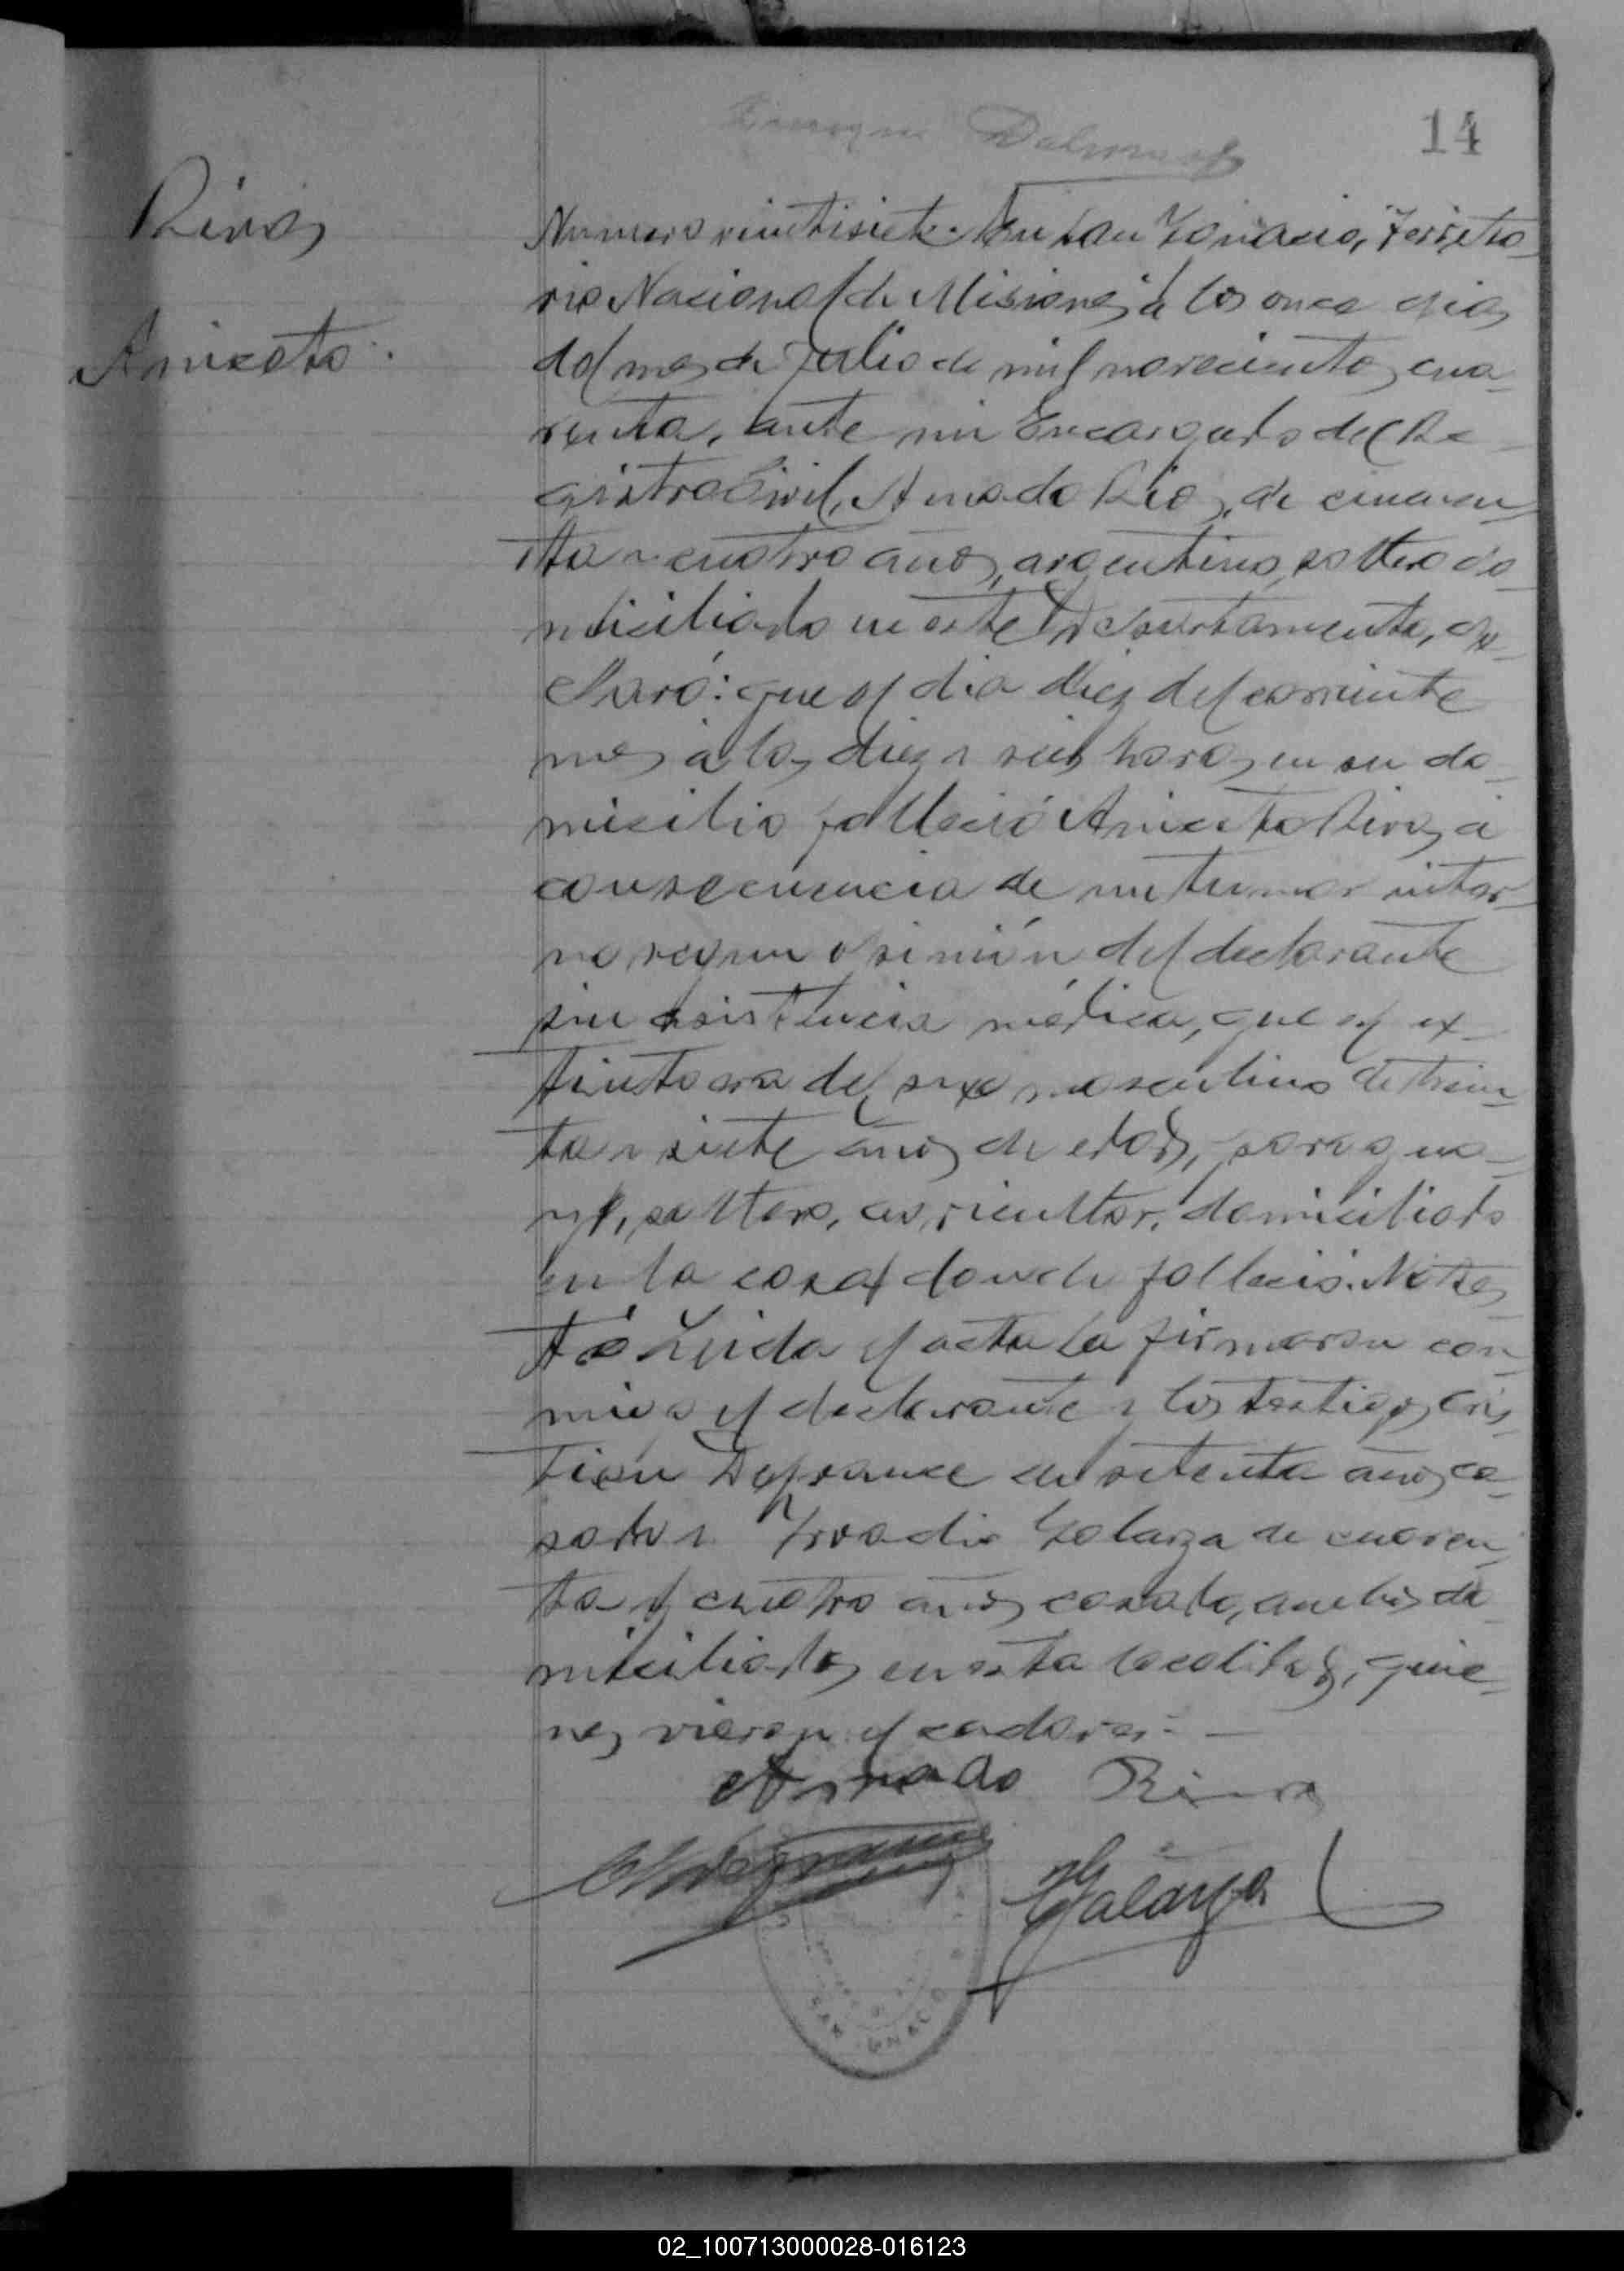 14
Rivas
Aniceto.
Numero veintisiete. En San Ignacio, Territo-
rio Nacional de Misiones, á los once dias
del mes de Julio de mil novecientos cua-
renta, ante mi Encargado del Re-
gistro Civil, Amado Rivas, de cincuen-
ta y cuatro años, argentino, soltero do-
miciliado en este Departamento, de-
claró: que el dia diez del corriente
mes á las diez y seis horas, en su do-
micilio falleció Aniceto Rivas, á
consecuencia de un tumor inter-
no segun opinión del declarante
sin asistencia médica, que el ex-
tinto era del sexo masculino de trein-
ta y siete años de edad, paragua-
yo, soltero, agricultor, domiciliado
en la casa donde falleció.
Leida el acta la firmaron con-
migo el declarante y los testigos Cris-
tián Defrance de setenta años ca-
sado y Galarza de cuaren-
ta y cuatro años casado, ambos do-
miciliados en esta localidad, quie-
nes vieron el cadaver.-
Amado Rivas
Galarza
SAN IGNACIO
02_100713000028-016123